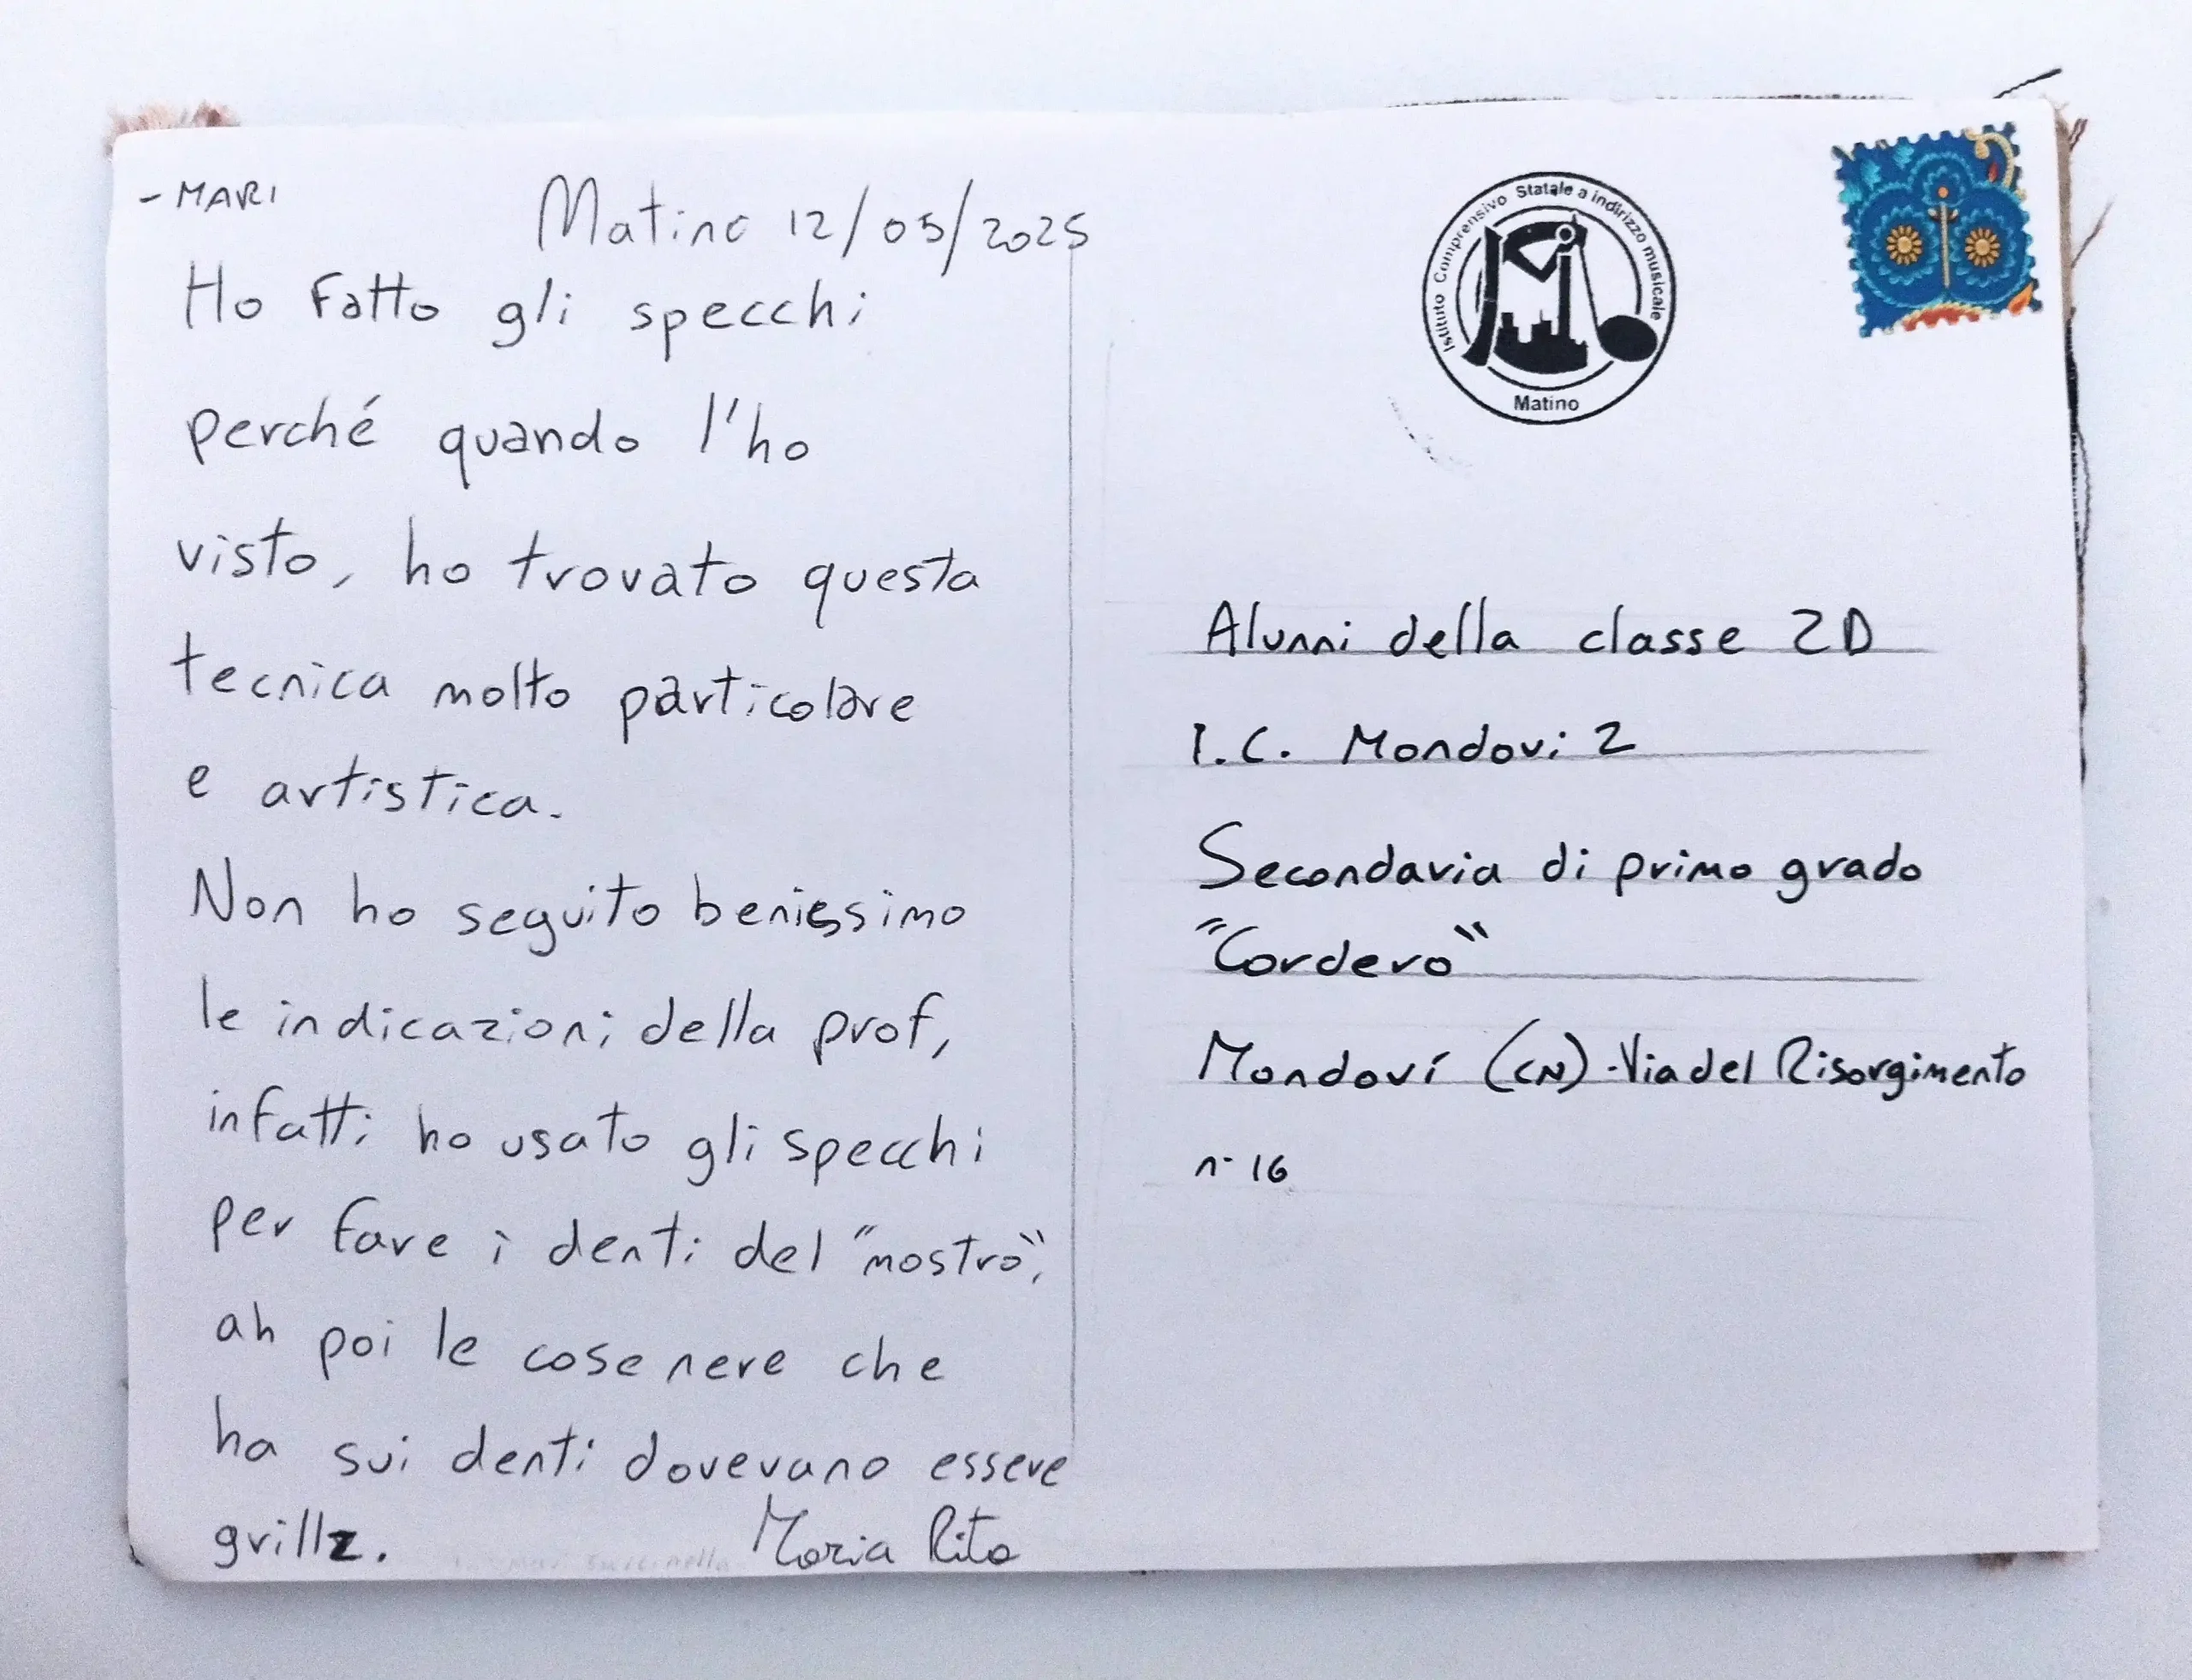 - MARI
Matino 12/05/2025
Ho fatto gli specchi
perché quando l'ho
visto, ho trovato questa
tecnica molto particolare
e artistica.
Non ho seguito benissimo
le indicazioni della prof,
infatti ho usato gli specchi
per fare i denti del "mostro",
ah poi le cose nere che
ha sui denti dovevano essere
grillz.
Maria Rita
Istituto Comprensivo Statale a indirizzo musicale
Matino
Alunni della classe 2D
I.C. Mondovi 2
Secondaria di primo grado
"Cordero"
Mondoví (CN) - Via del Risorgimento
n- 16